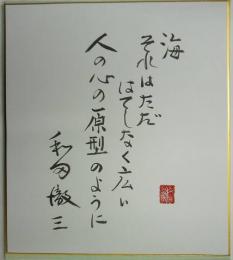 海
それはただ
はてしなく広い
人の心の原型のように
和田徹三